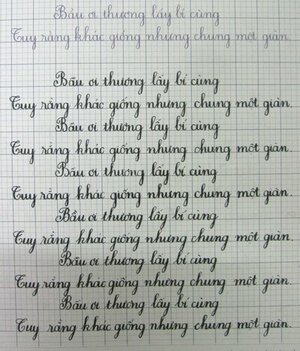 Bầu ơi thương lấy bí cùng
Tuy rằng khác giống nhưng chung một giàn.
Bầu ơi thương lấy bí cùng
Tuy rằng khác giống nhưng chung một giàn.
Bầu ơi thương lấy bí cùng
Tuy rằng khác giống nhưng chung một giàn.
Bầu ơi thương lấy bí cùng
Tuy rằng khác giống nhưng chung một giàn.
Bầu ơi thương lấy bí cùng
Tuy rằng khác giống nhưng chung một giàn.
Bầu ơi thương lấy bí cùng
Tuy rằng khác giống nhưng chung một giàn.
Bầu ơi thương lấy bí cùng
Tuy rằng khác giống nhưng chung một giàn.